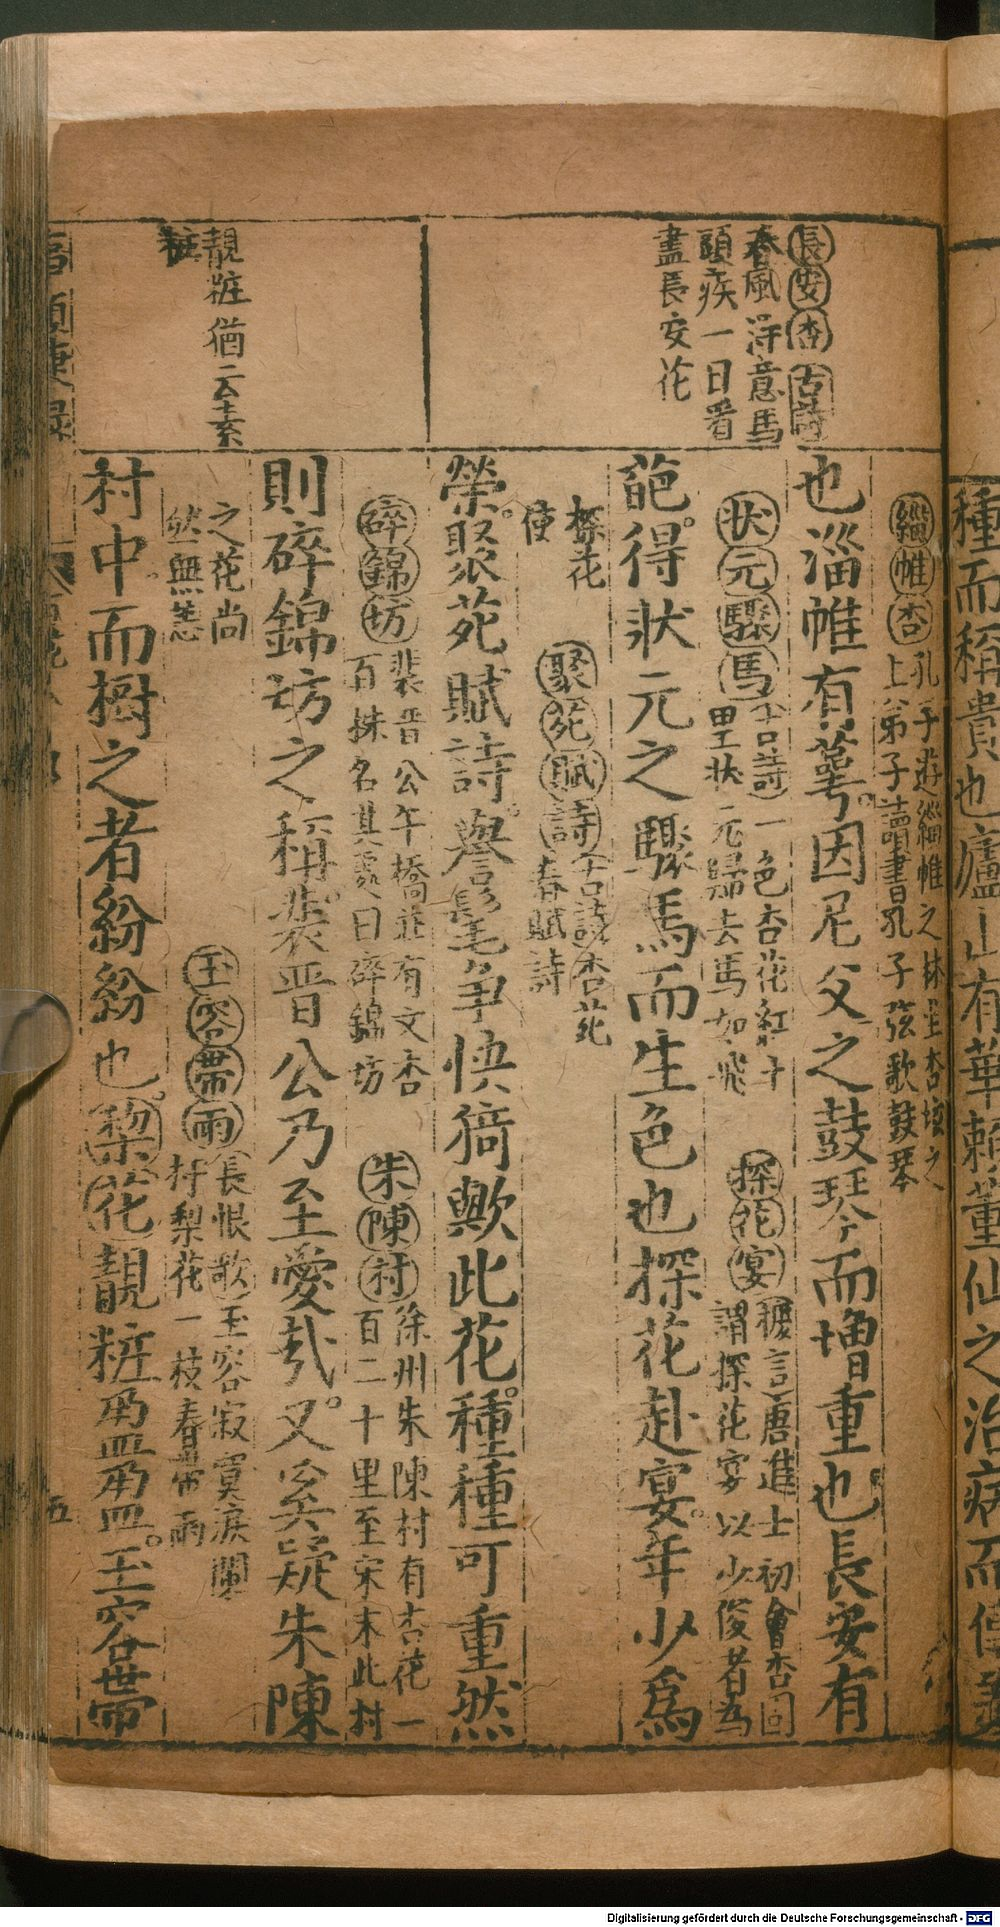 種而稱貴也廬山有華賴董仙之治病而傳
長安杏 古詩
春風得意馬
頭疾一日看
盡長安花
靚粧猶云素
粧
緇帷杏 孔子遊緇帷之林坐杏壇之
上弟子讀書孔子弦歌鼓琴
也淄帷有萼因尼父之鼓琴而增重也長安有
狀元驟馬 古詩一色杏花紅十
里狀元歸去馬如飛
探花宴 摭言唐進士初會杏園
謂探花宴以少俊者為
葩得狀元之驟馬而生色也探花赴宴年少爲
探花
使
聚苑賦詩 古詩杏苑
春賦詩
榮聚苑賦詩譽髦争快猗歟此花種種可重然
碎錦坊 裴晋公午橋莊有文杏
百株名其處曰碎錦坊
朱陳村 徐州朱陳村有杏花一
百二十里至宋末此村
則碎錦坊之稱裴晋公乃至愛矣又奚疑朱陳
之花尚
然無恙
玉容帶雨 長恨歌玉容寂寞淚闌
杆梨花一枝春帶雨
村中而樹之者紛紛也梨花靚粧盈盈玉容帶
五
Digitalisierung gefördert durch die Deutsche Forschungsgemeinschaft - DFG